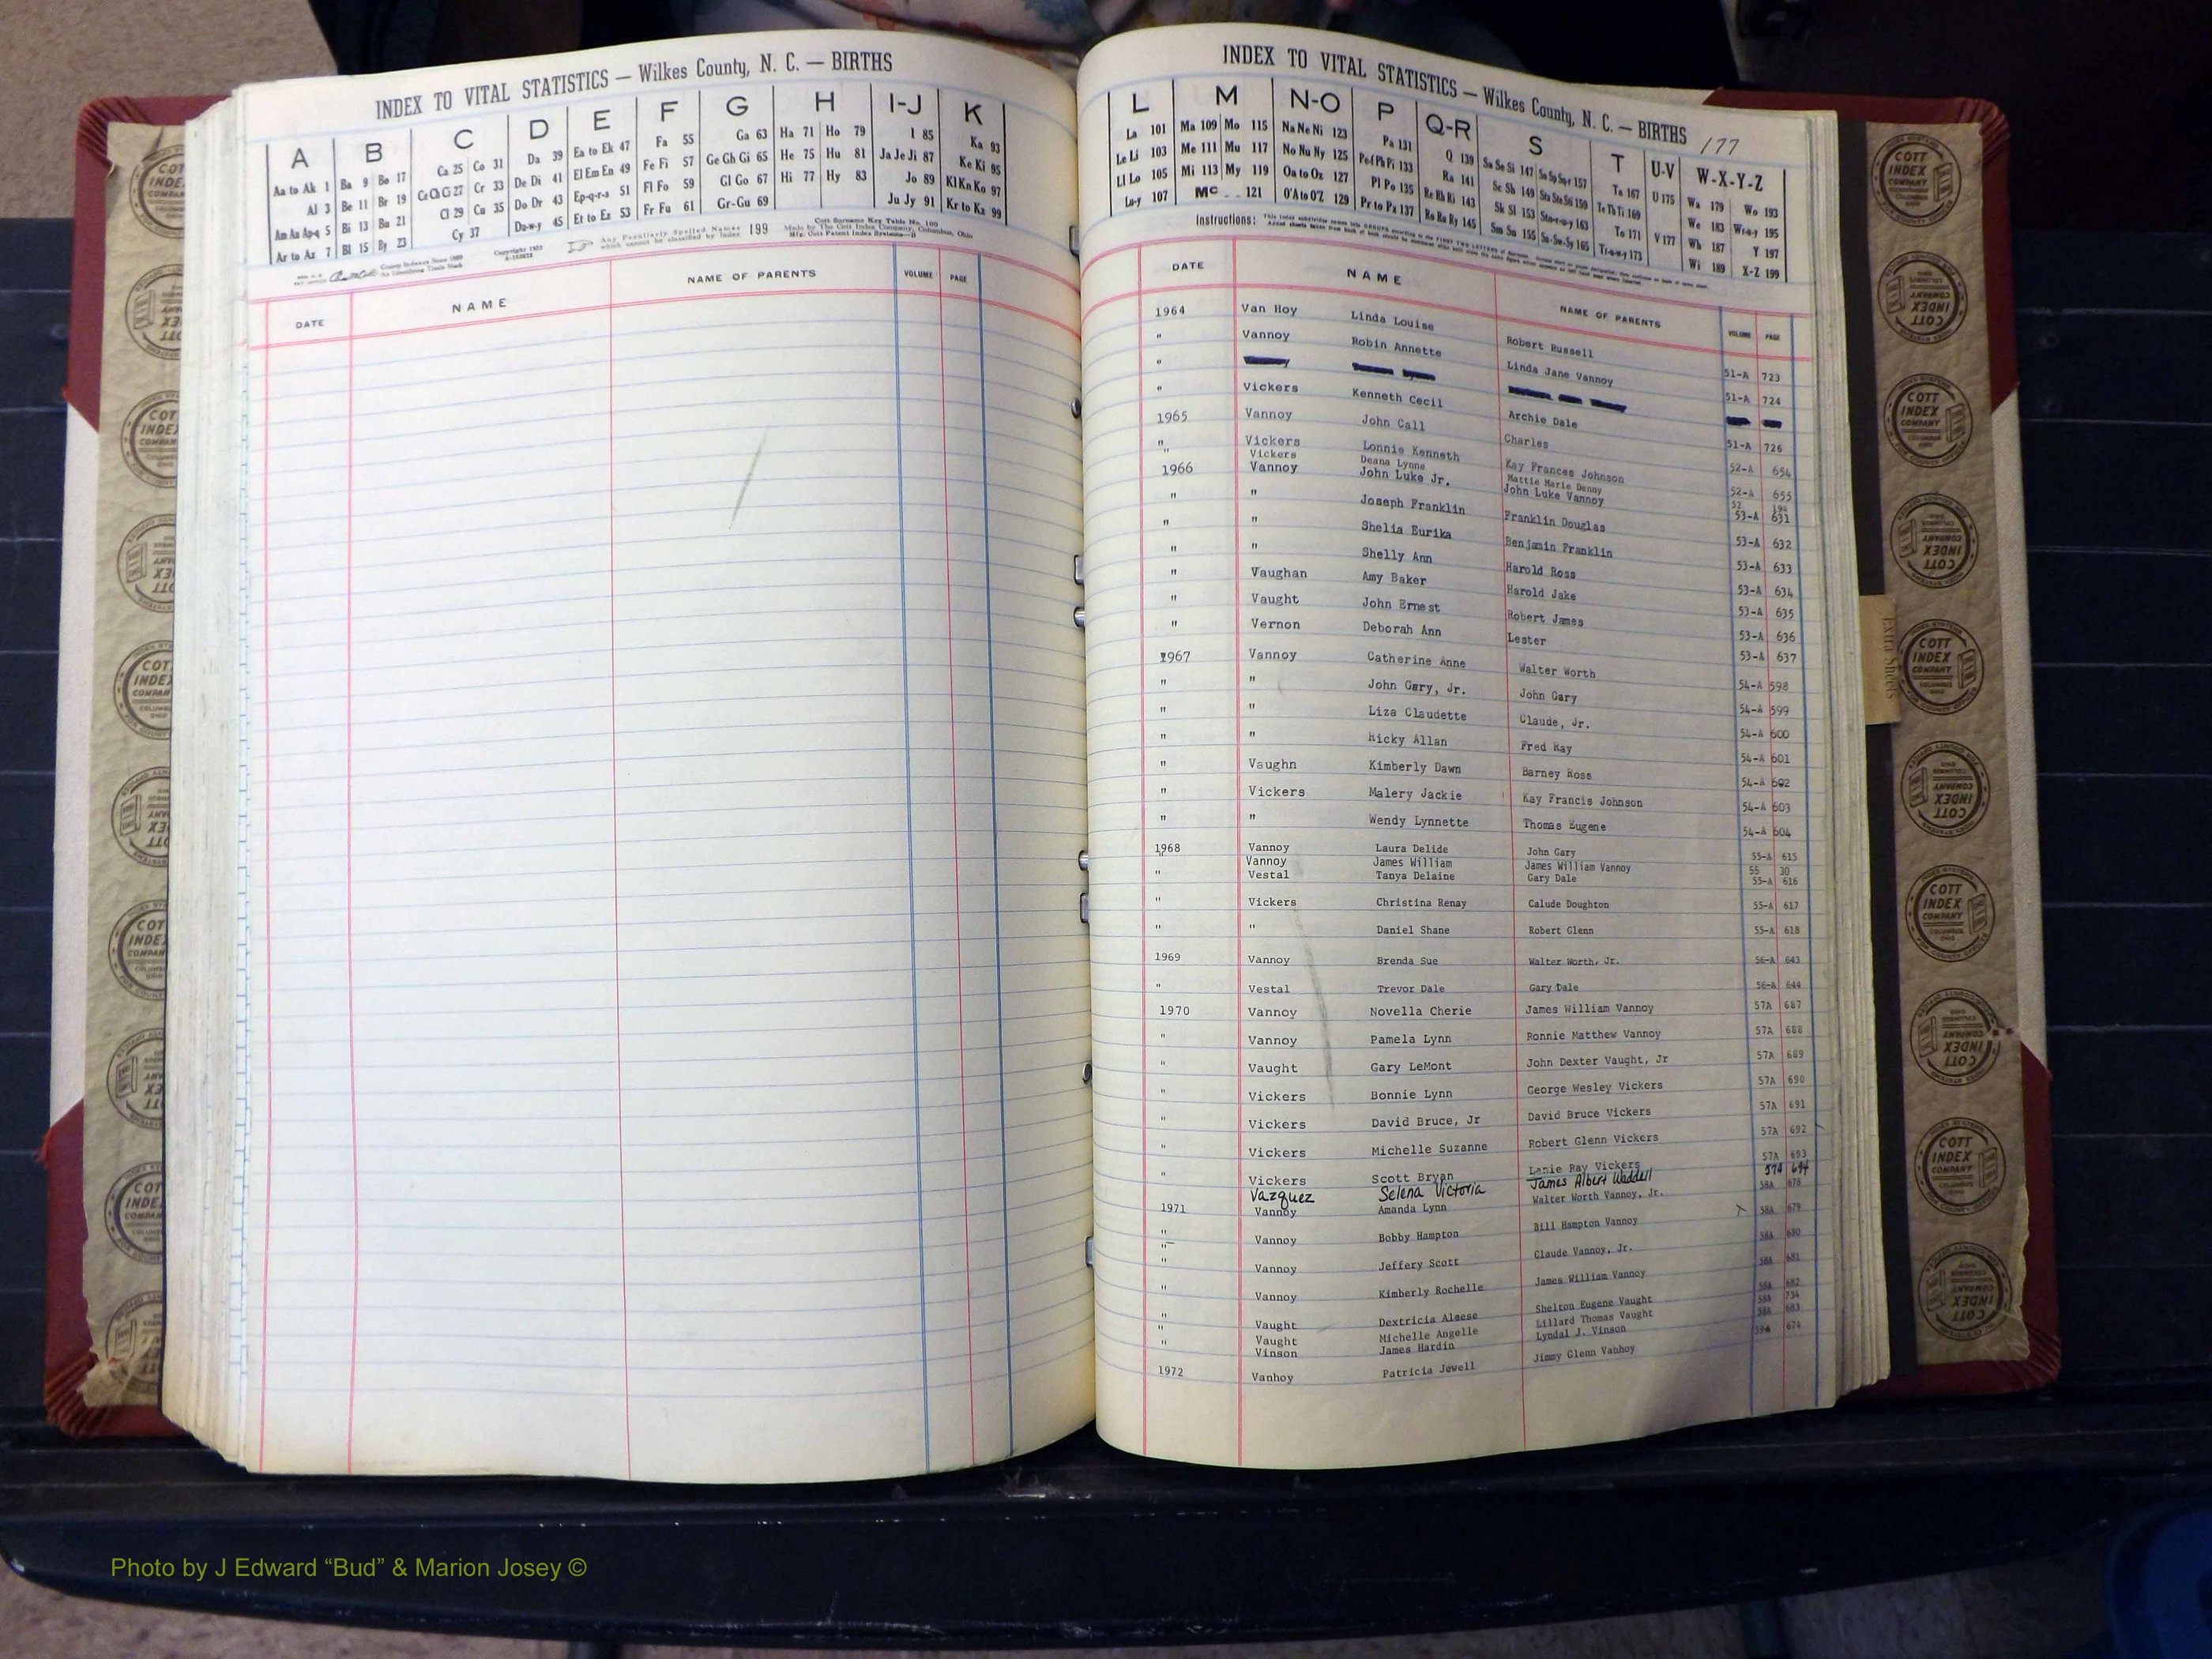 INDEX TO VITAL STATISTICS — Wilkes County, N. C. — BIRTHS
A B C D E F G H I-J K
Aa to Ak 1 Ba 9 Bo 17 Ca 25 Co 31 Da 39 Ea to Ek 47 Fa 55 Ga 63 Ha 71 Ho 79 I 85 Ka 93
Al 3 Be 11 Br 19 Ce Ch Ci 27 Cr 33 De Di 41 El Em En 49 Fe Fi 57 Ge Gh Gi 65 He 75 Hu 81 Ja Je Ji 87 Ke Ki 95
Am An Ap-q 5 Bi 13 Bu 21 Cl 29 Cu 35 Do Dr 43 Ep-q-r-s 51 Fl Fo 59 Gl Go 67 Hi 77 Hy 83 Jo 89 Kl Kn Ko 97
Ar to Az 7 Bl 15 By 23 Cy 37 Du-w-y 45 Et to Ez 53 Fr Fu 61 Gr-Gu 69 Ju Jy 91 Kr to Kz 99
County Indexes Since 1888
An Identifying Trade Mark
Any Peculiarly Spelled Names
which cannot be classified by Index 199
Cott Surname Key Table No. 100
Made by The Cott Index Company, Columbus, Ohio
Mfg. Cott Patent Index Systems—B
DATE NAME NAME OF PARENTS VOLUME PAGE
INDEX TO VITAL STATISTICS — Wilkes County, N. C. — BIRTHS 177
L M N-O P Q-R S T U-V W-X-Y-Z
La 101 Ma 109 Mo 115 Na Ne Ni 123 Pa 131 Q 139 Sa Se Si 147 So Sp Sq-r 157 Ta 167 U 175 Wa 179 Wo 193
Le Li 103 Me 111 Mu 117 No Nu Ny 125 Pe-f Ph Pi 133 Ra 141 Sc Sh 149 Sta Ste Sti 159 Te Th Ti 169 V 177 We 183 Wr-u-y 195
Ll Lo 105 Mi 113 My 119 Oa to Oz 127 Pl Po 135 Re Rh Ri 143 Sk Sl 153 Sto-r-u-y 163 To 171 Wh 187 Y 197
Lu-y 107 Mc 121 O'A to O'Z 129 Pr to Pz 137 Ro Ru Ry 145 Sm Sn 155 Su-Sw-Sy 165 Tr-u-w-y 173 Wi 189 X-Z 199
Instructions:
DATE NAME NAME OF PARENTS VOLUME PAGE
1964 Van Hoy Linda Louise Robert Russell 51-A 723
" Vannoy Robin Annette Linda Jane Vannoy 51-A 724
"
" Vickers Kenneth Cecil Archie Dale 51-A 726
1965 Vannoy John Call Charles 52-A 654
" Vickers Lonnie Kenneth Kay Frances Johnson 52-A 655
" Vickers Deana Lynne Mattie Marie Denny 52 194
1966 Vannoy John Luke Jr. John Luke Vannoy 53-A 631
" " Joseph Franklin Franklin Douglas 53-A 632
" " Shelia Eurika Benjamin Franklin 53-A 633
" " Shelly Ann Harold Ross 53-A 634
" Vaughan Amy Baker Harold Jake 53-A 635
" Vaught John Ernest Robert James 53-A 636
" Vernon Deborah Ann Lester 53-A 637
1967 Vannoy Catherine Anne Walter Worth 54-A 598
" " John Gary, Jr. John Gary 54-A 599
" " Liza Claudette Claude, Jr. 54-A 600
" " Ricky Allan Fred Ray 54-A 601
" Vaughn Kimberly Dawn Barney Ross 54-A 602
" Vickers Malery Jackie Kay Francis Johnson 54-A 603
" " Wendy Lynnette Thomas Eugene 54-A 604
1968 Vannoy Laura Delide John Gary 55-A 615
" Vannoy James William James William Vannoy 55 30
" Vestal Tanya Delaine Gary Dale 55-A 616
" Vickers Christina Renay Calude Doughton 55-A 617
" " Daniel Shane Robert Glenn 55-A 618
1969 Vannoy Brenda Sue Walter Worth, Jr. 56-A 643
" Vestal Trevor Dale Gary Dale 56-A 644
1970 Vannoy Novella Cherie James William Vannoy 57A 687
" Vannoy Pamela Lynn Ronnie Matthew Vannoy 57A 688
" Vaught Gary LeMont John Dexter Vaught, Jr 57A 689
" Vickers Bonnie Lynn George Wesley Vickers 57A 690
" Vickers David Bruce, Jr David Bruce Vickers 57A 691
" Vickers Michelle Suzanne Robert Glenn Vickers 57A 692
" Vickers Scott Bryan Lanie Ray Vickers 57A 693
Vazquez Selena Victoria James Albert Waddell 57A 694
1971 Vannoy Amanda Lynn Walter Worth Vannoy, Jr. 58A 678
" Vannoy Bobby Hampton Bill Hampton Vannoy 58A 679
" Vannoy Jeffery Scott Claude Vannoy, Jr. 58A 680
" Vannoy Kimberly Rochelle James William Vannoy 58A 681
" Vaught Dextricia Aleese Shelton Eugene Vaught 58A 682
" Vaught Michelle Angelle Lillard Thomas Vaught 58A 734
" Vinson James Hardin Lyndal J. Vinson 58A 683
1972 Vanhoy Patricia Jewell Jimmy Glenn Vanhoy 59A 674
Extra Sheets
COTT INDEX COMPANY COLUMBUS OHIO
Photo by J Edward “Bud” & Marion Josey ©